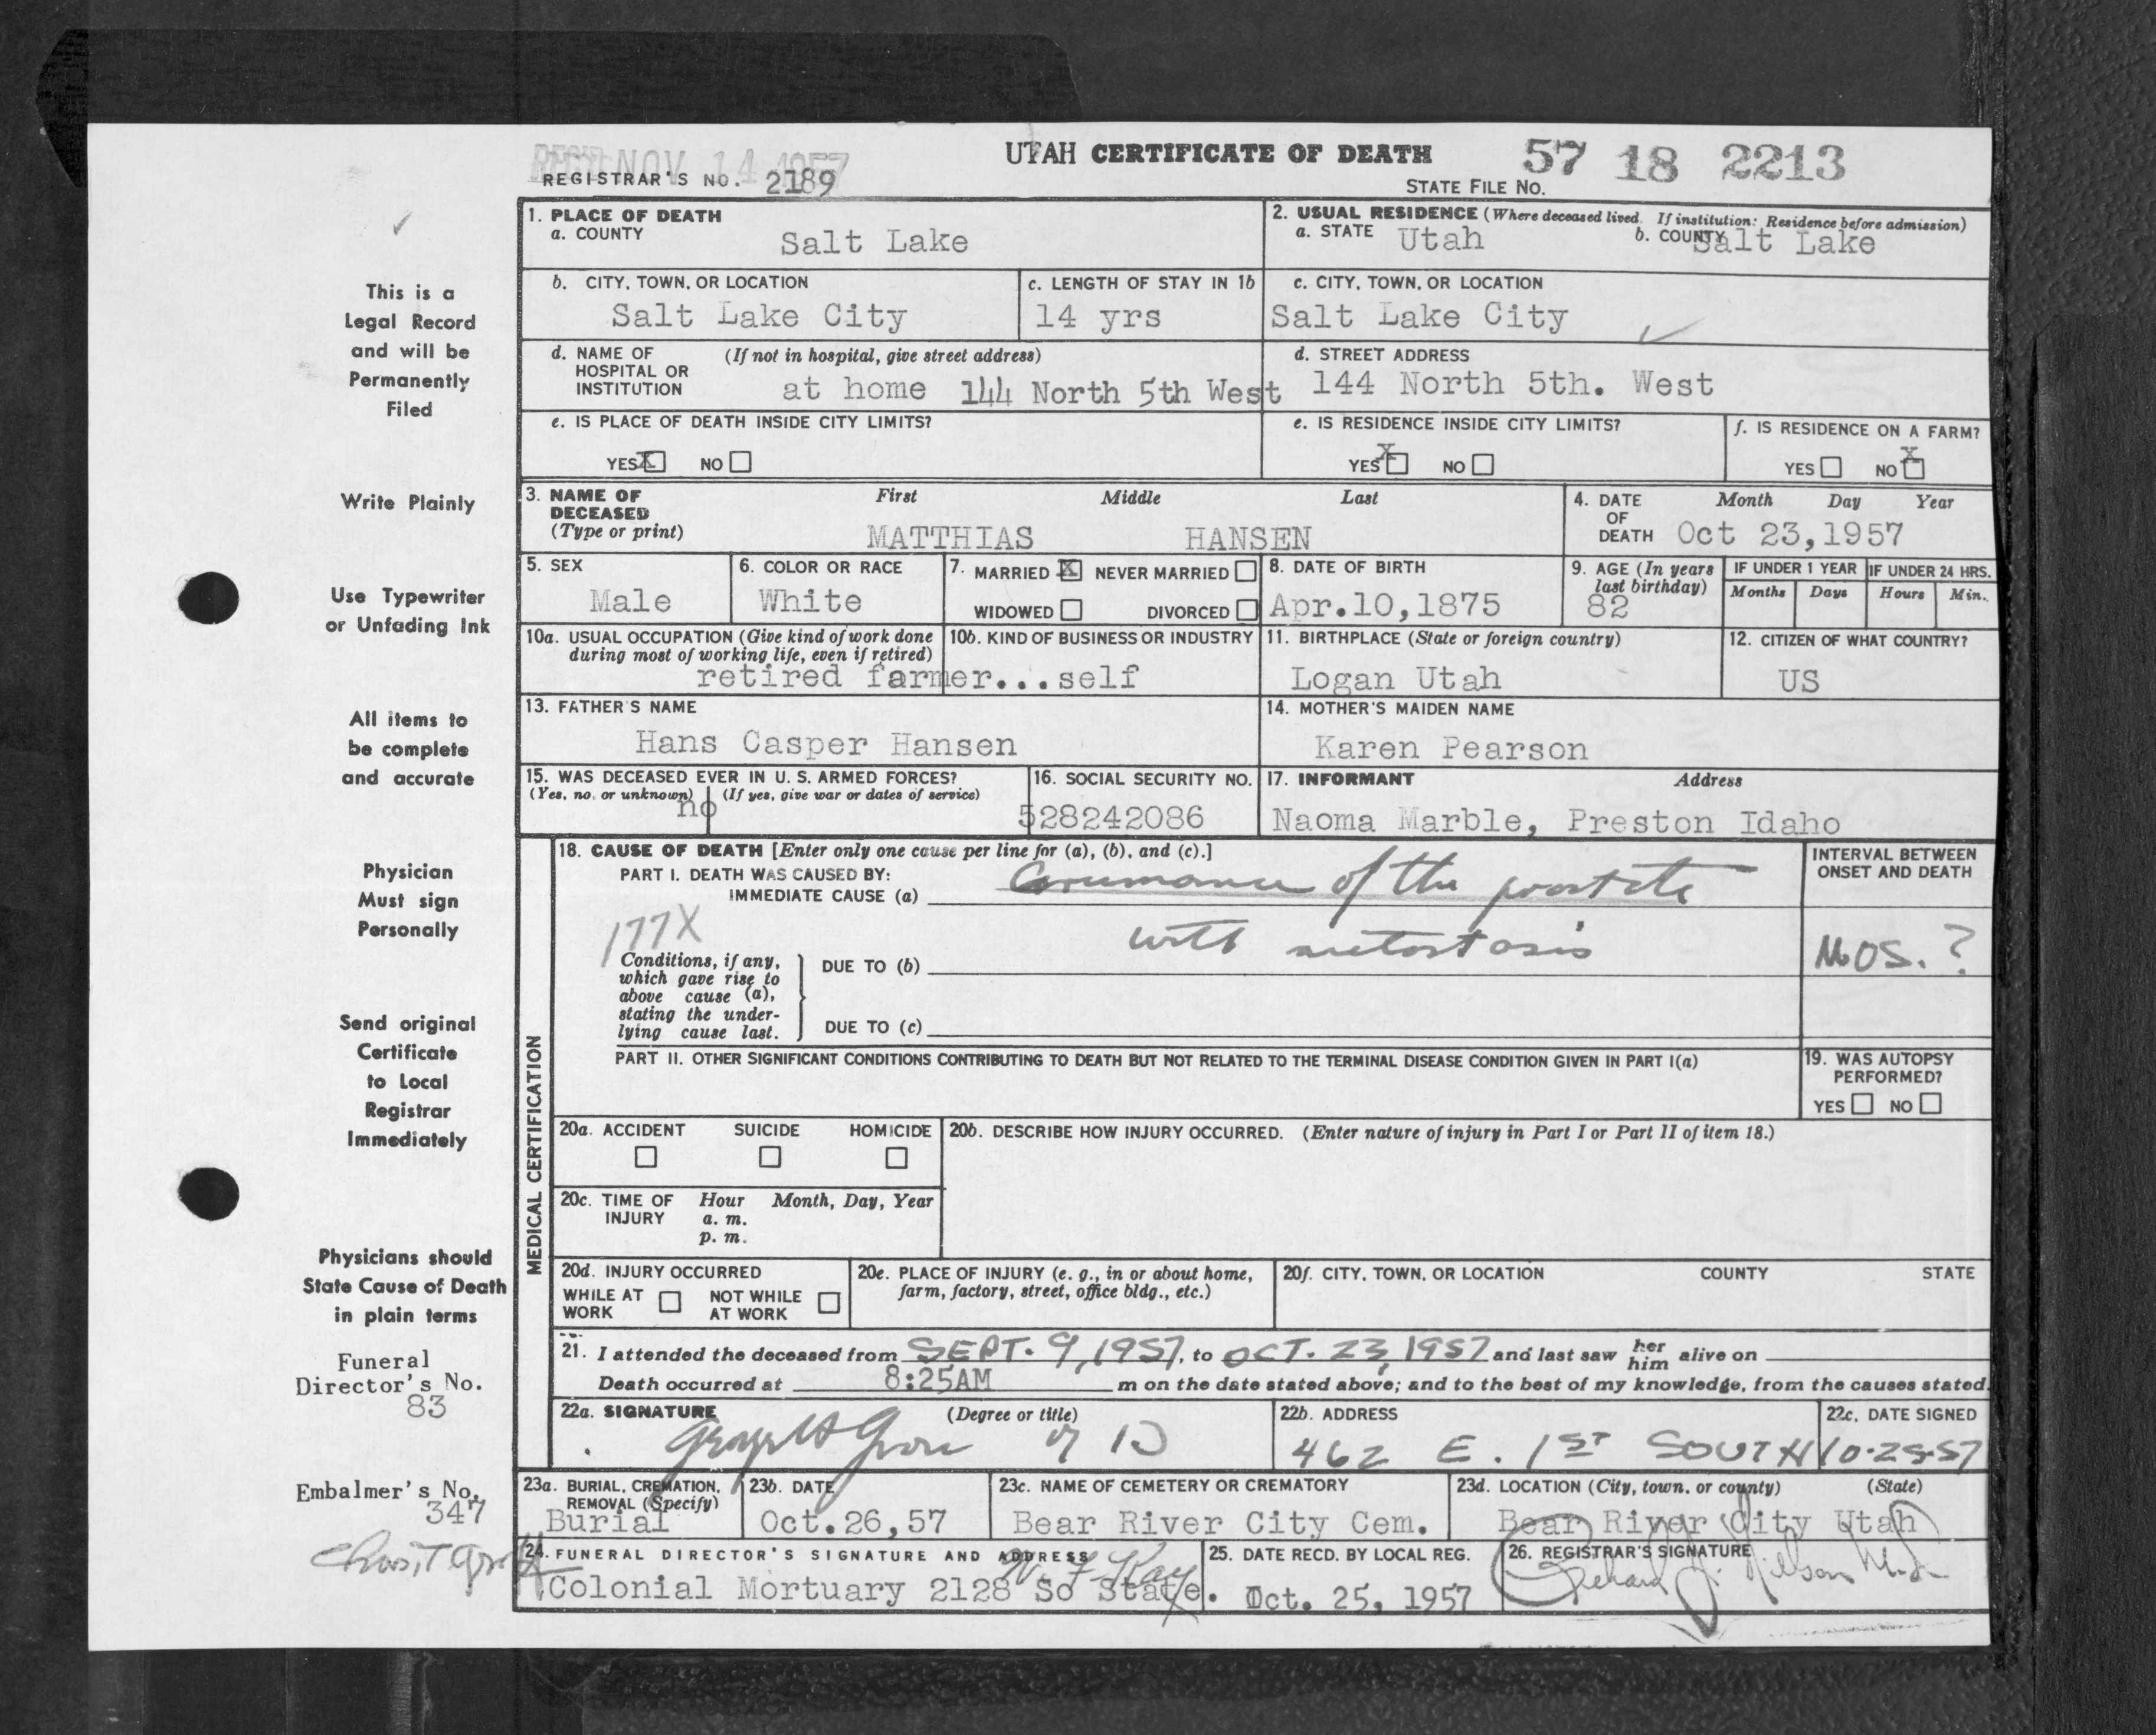 REC'D NOV 14 1957
UTAH CERTIFICATE OF DEATH
57 18 2213
REGISTRAR'S NO. 2189
STATE FILE NO.
1. PLACE OF DEATH
a. COUNTY
Salt Lake
2. USUAL RESIDENCE (Where deceased lived. If institution: Residence before admission)
a. STATE Utah b. COUNTY Salt Lake
b. CITY, TOWN, OR LOCATION
Salt Lake City
c. LENGTH OF STAY IN 1b
14 yrs
c. CITY, TOWN, OR LOCATION
Salt Lake City
d. NAME OF HOSPITAL OR INSTITUTION (If not in hospital, give street address)
at home 144 North 5th West
d. STREET ADDRESS
144 North 5th. West
e. IS PLACE OF DEATH INSIDE CITY LIMITS?
YES X NO
e. IS RESIDENCE INSIDE CITY LIMITS?
YES X NO
f. IS RESIDENCE ON A FARM?
YES NO X
3. NAME OF DECEASED (Type or print)
First Middle Last
MATTHIAS HANSEN
4. DATE OF DEATH Month Day Year
Oct 23,1957
5. SEX
Male
6. COLOR OR RACE
White
7. MARRIED X NEVER MARRIED
WIDOWED DIVORCED
8. DATE OF BIRTH
Apr.10,1875
9. AGE (In years last birthday)
82
IF UNDER 1 YEAR
Months Days
IF UNDER 24 HRS.
Hours Min.
10a. USUAL OCCUPATION (Give kind of work done during most of working life, even if retired)
10b. KIND OF BUSINESS OR INDUSTRY
retired farmer...self
11. BIRTHPLACE (State or foreign country)
Logan Utah
12. CITIZEN OF WHAT COUNTRY?
US
13. FATHER'S NAME
Hans Casper Hansen
14. MOTHER'S MAIDEN NAME
Karen Pearson
15. WAS DECEASED EVER IN U. S. ARMED FORCES?
(Yes, no, or unknown) (If yes, give war or dates of service)
no
16. SOCIAL SECURITY NO.
528242086
17. INFORMANT Address
Naoma Marble, Preston Idaho
MEDICAL CERTIFICATION
18. CAUSE OF DEATH [Enter only one cause per line for (a), (b), and (c).]
PART I. DEATH WAS CAUSED BY:
IMMEDIATE CAUSE (a) of the prostate
INTERVAL BETWEEN ONSET AND DEATH
177X
Conditions, if any, which gave rise to above cause (a), stating the underlying cause last.
DUE TO (b) with metastasis
MOS. ?
DUE TO (c)
PART II. OTHER SIGNIFICANT CONDITIONS CONTRIBUTING TO DEATH BUT NOT RELATED TO THE TERMINAL DISEASE CONDITION GIVEN IN PART I(a)
19. WAS AUTOPSY PERFORMED?
YES NO
20a. ACCIDENT SUICIDE HOMICIDE
20b. DESCRIBE HOW INJURY OCCURRED. (Enter nature of injury in Part I or Part II of item 18.)
20c. TIME OF INJURY Hour Month, Day, Year
a. m.
p. m.
20d. INJURY OCCURRED
WHILE AT WORK NOT WHILE AT WORK
20e. PLACE OF INJURY (e. g., in or about home, farm, factory, street, office bldg., etc.)
20f. CITY, TOWN, OR LOCATION COUNTY STATE
21. I attended the deceased from SEPT. 9, 1957, to OCT. 23, 1957 and last saw her him alive on
Death occurred at 8:25AM m on the date stated above; and to the best of my knowledge, from the causes stated.
22a. SIGNATURE (Degree or title)
22b. ADDRESS
462 E. 1ST SOUTH
22c. DATE SIGNED
10-25-57
23a. BURIAL, CREMATION, REMOVAL (Specify)
Burial
23b. DATE
Oct.26,57
23c. NAME OF CEMETERY OR CREMATORY
Bear River City Cem.
23d. LOCATION (City, town, or county) (State)
Bear River City Utah
24. FUNERAL DIRECTOR'S SIGNATURE AND ADDRESS
Colonial Mortuary 2128 So State.
25. DATE RECD. BY LOCAL REG.
Oct. 25, 1957
26. REGISTRAR'S SIGNATURE
This is a
Legal Record
and will be
Permanently
Filed
Write Plainly
Use Typewriter
or Unfading Ink
All items to
be complete
and accurate
Physician
Must sign
Personally
Send original
Certificate
to Local
Registrar
Immediately
Physicians should
State Cause of Death
in plain terms
Funeral
Director's No.
83
Embalmer's No.
347